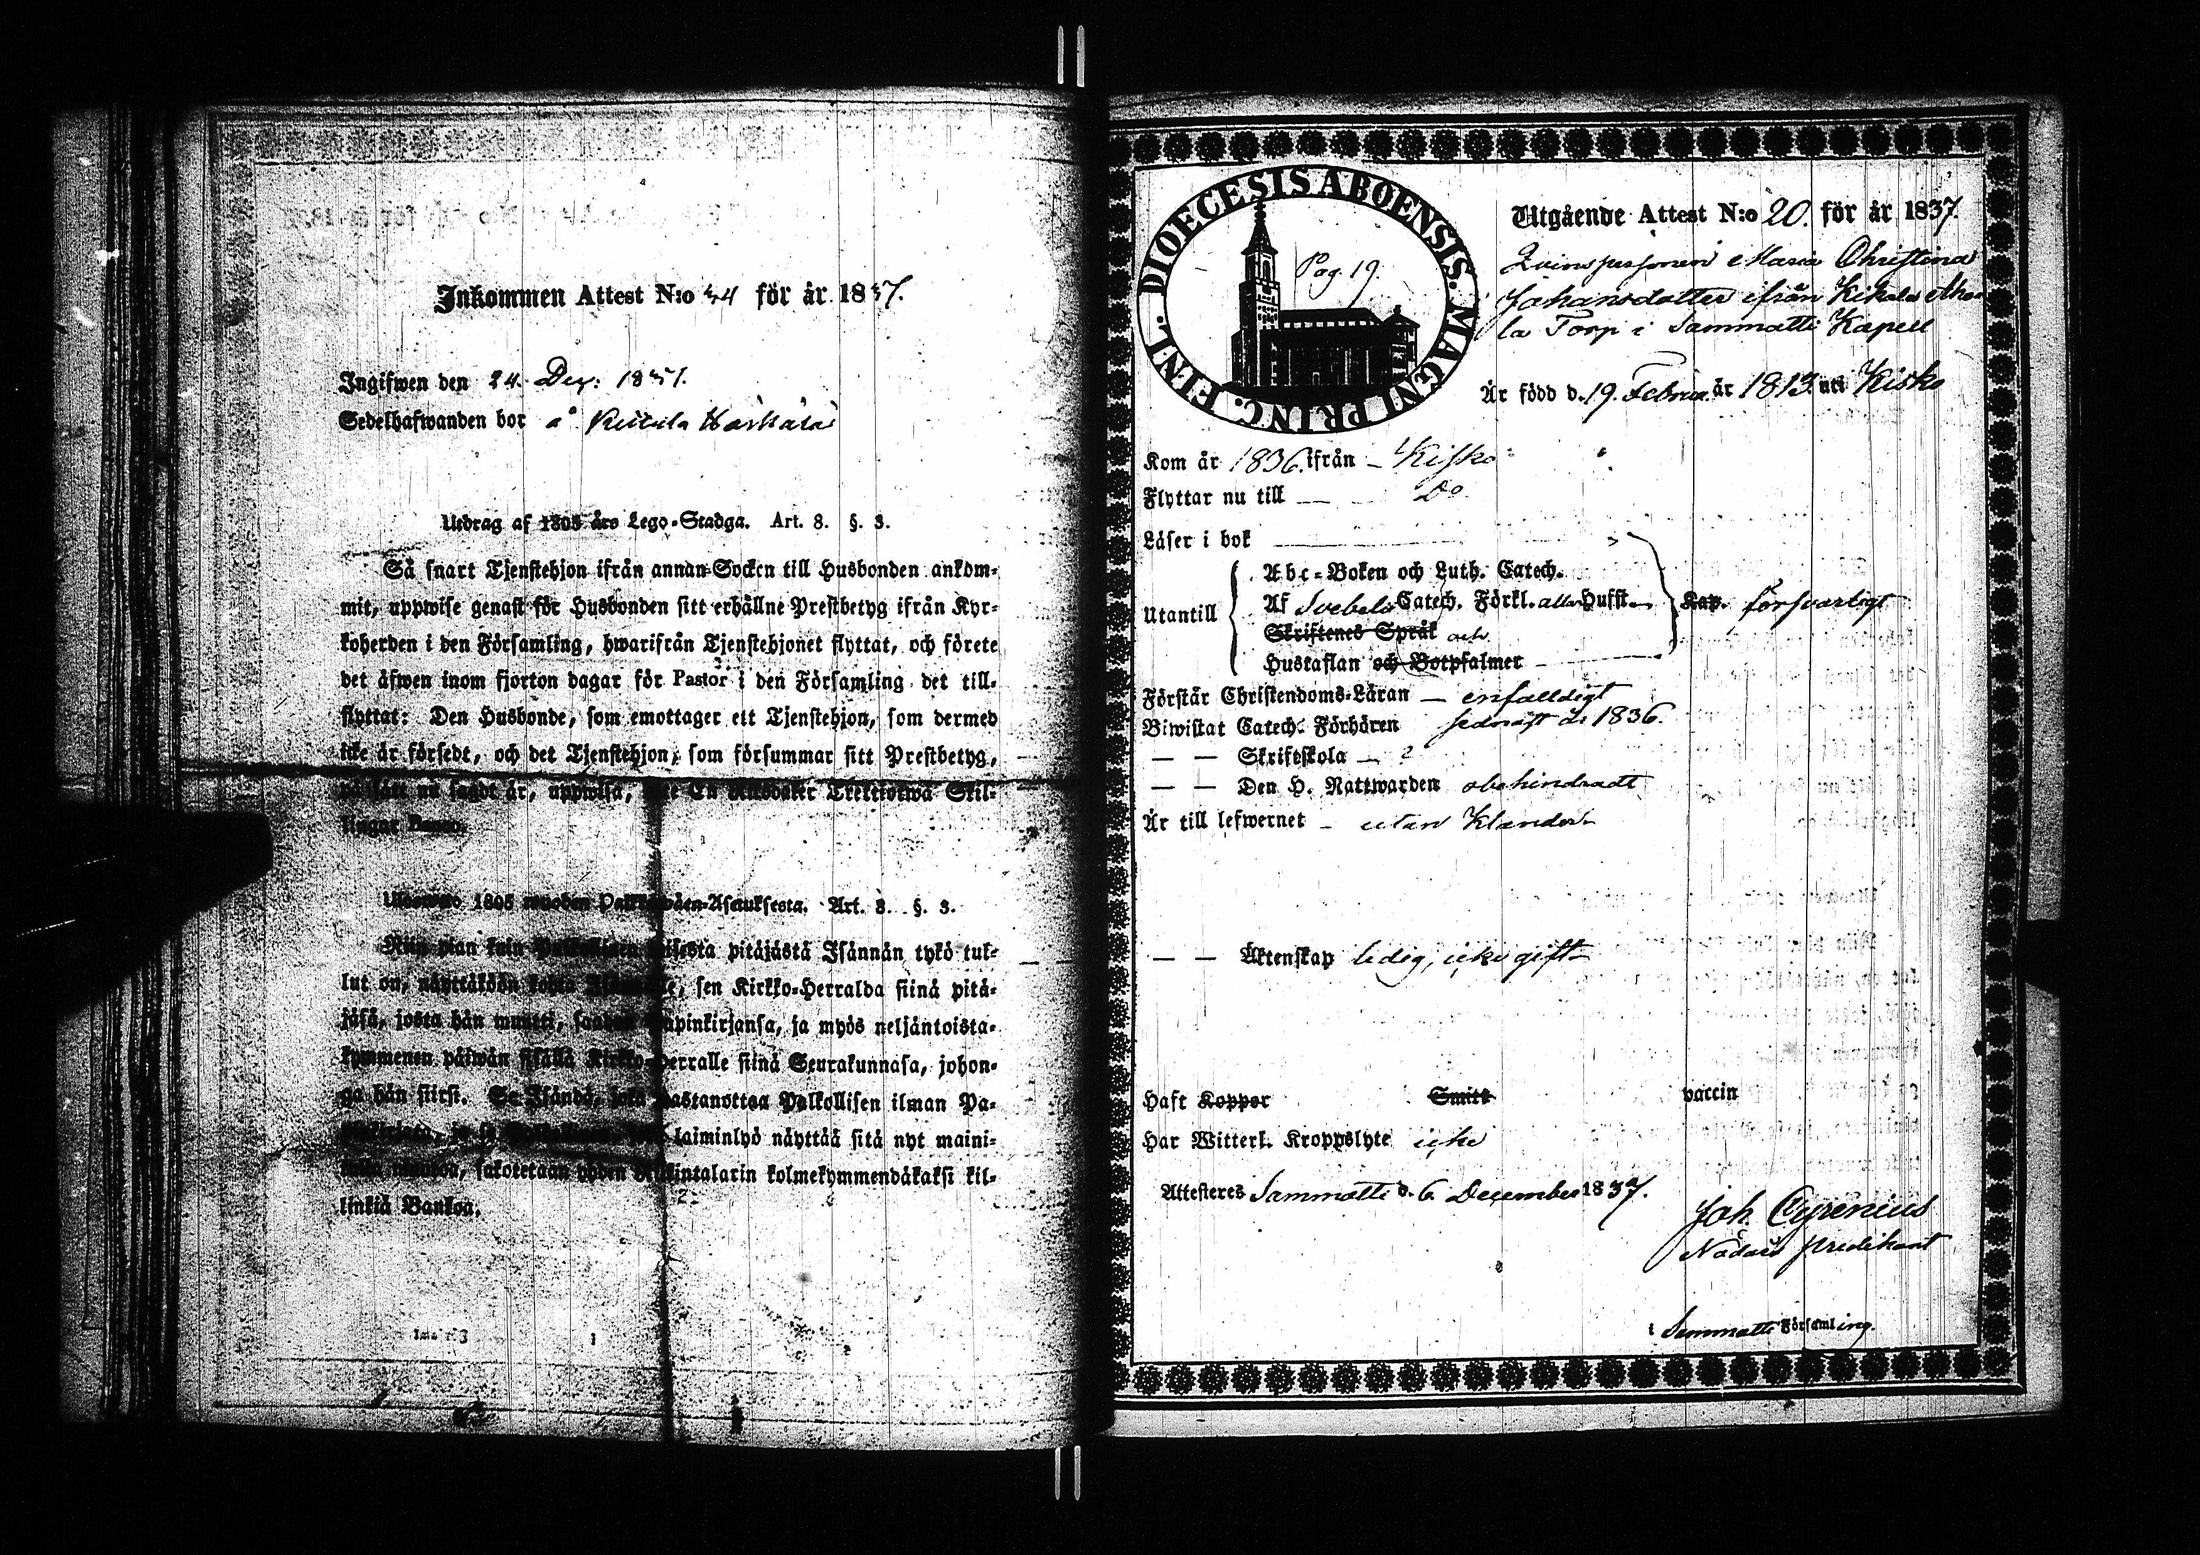 Inkommen Attest N:o 44 för år 1837.
Ingifwen den 24. Dec: 1837.
Sedelhafwanden bor å
Utdrag af 1805 års Lego-Stadga. Art. 8. §. 3.
Så snart Tjenstehjon ifrån annan Socken till Husbonden ankom-
mit, uppwise genast för Husbonden sitt erhållne Prestbetyg ifrån Kyr-
koherden i den Församling, hwarifrån Tjenstehjonet flyttat, och förete
det äfwen inom fjorton dagar för Pastor i den Församling det till-
flyttat: Den Husbonde, som emottager ett Tjenstehjon, som dermed
icke är försedt, och det Tjenstehjon, som försummar sitt Prestbetyg,
på sätt nu sagdt är, uppwisa, Riksdaler Trettiotwå Skil-
lingar Banco.
Ulosweto 1805 wuoden Palkkawäen-Asetuksesta. Art. 8. §. 3.
Niin pian kuin Palkollinen pitäjästä Isännän tykö tul-
lut on, näyttäköön kohta sen Kirkko-Herralda siinä pitä-
jäsä, josta hän muutti, saadun Papinkirjansa, ja myös neljäntoista-
kymmenen päiwän sisällä Kirkko-Herralle siinä Seurakunnasa, johon-
ga hän siirsi. Se Isändä, joka wastanottaa Palkollisen ilman Pa-
laiminlyö näyttää sitä nyt maini-
sakotetaan yhden Riikintalarin kolmekymmendäkaksi kil-
linkiä Bankoa.
DIOECESIS ABOENSIS. MAGNI PRINC. FINL.
Pag. 19.
Utgående Attest N:o 20. för år 1837.
Qvinspersonen Maria Christina
Johansdotter ifrån Kikala Aho-
la Torp i Sammatti Kapell
Är född d. 19. Februa. år 1813. uti Kisko
Kom år 1836. ifrån – Kisko
Flyttar nu till — Do
Läser i bok
Abc-Boken och Luth. Catech.
Utantill Af Svebelii Catech. Förkl. alla Hufst. Kap. försvarligt
Skriftenes Språk och
Hustaflan och Botpsalmer
Förstår Christendoms-Läran — enfaldigt
Biwistat Catech. Förhören sednast år 1836.
— — Skriftskola —
— — Den H. Nattwarden obehindradt
Är till lefwernet – utan Klander
— — Äktenskap ledig, icke gift
Haft Koppor Smitt vaccin
Har Witterl. Kroppslyte icke
Attesteres Sammatti d. 6. December 1837.
Joh. Cyrenius
Nådårs predikant
i Sammatti Församling.